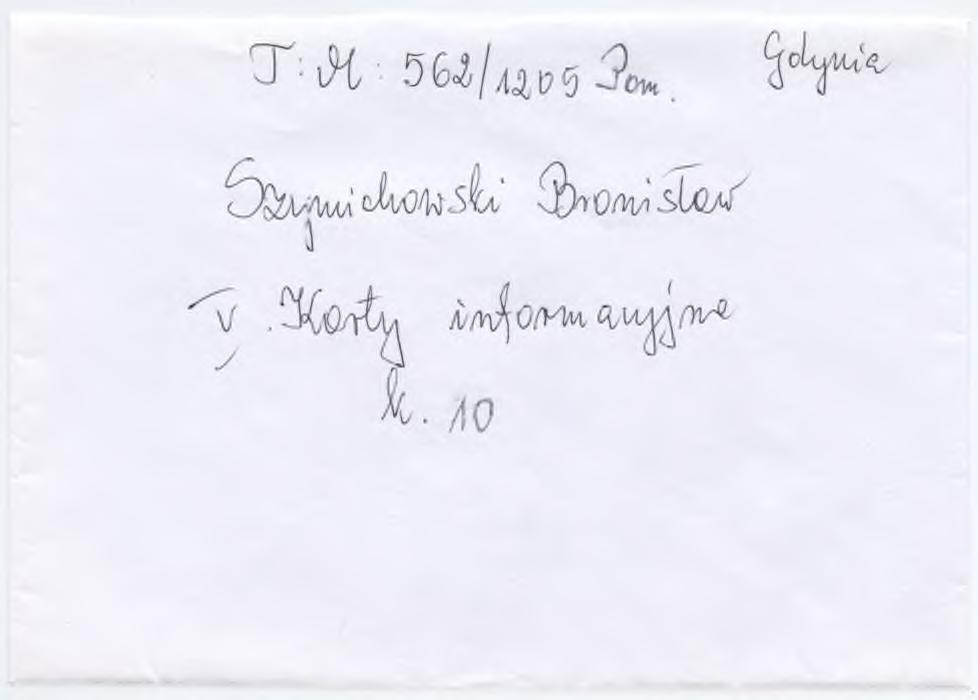 T: M: 562/1205 Pom. Gdynia
Szymichowski Bronisław
V. Karty informacyjne
k. 10